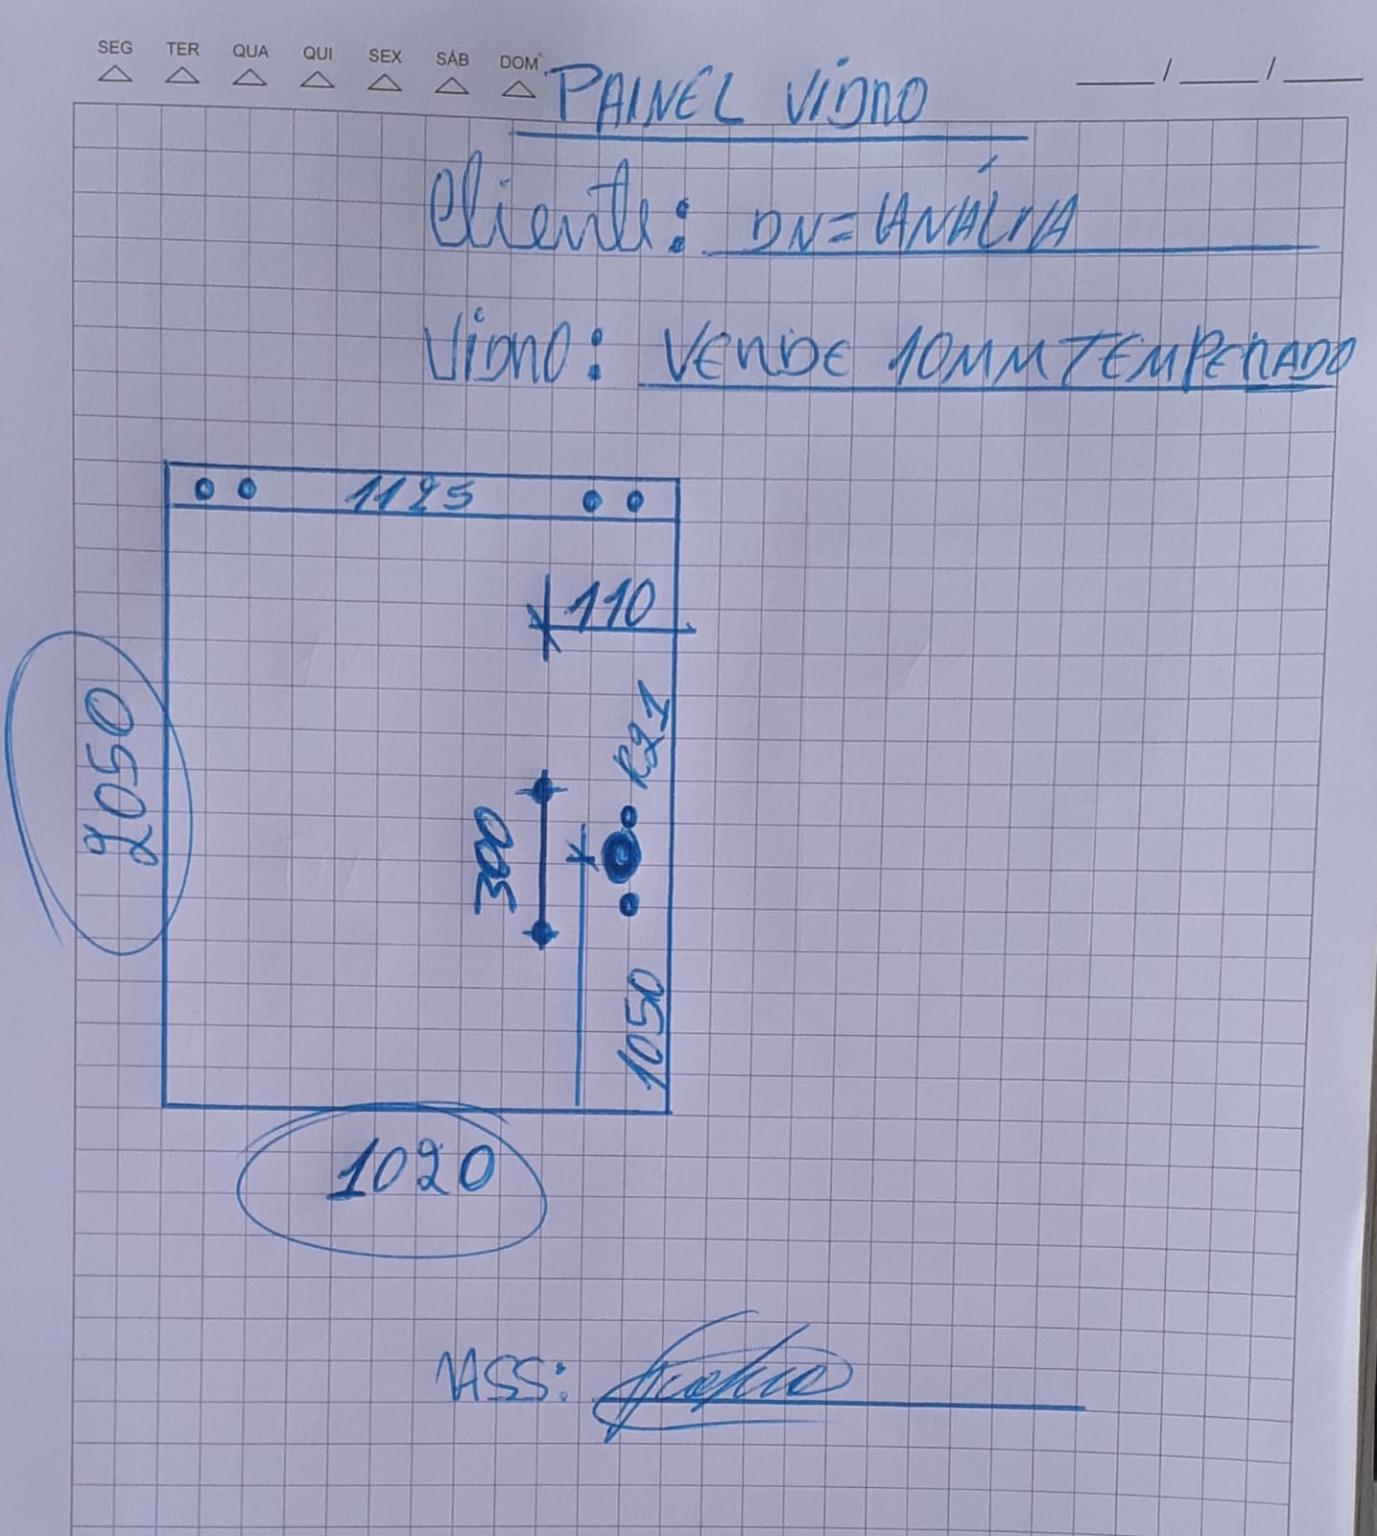 SEG TER QUA QUI SEX SÁB DOM
___/___/___
PAINEL VIDRO
Cliente: DNª ANÁLIA
Vidro: VERDE 10MM TEMPERADO
1125
110
R21
2050
300
1050
1020
ASS: